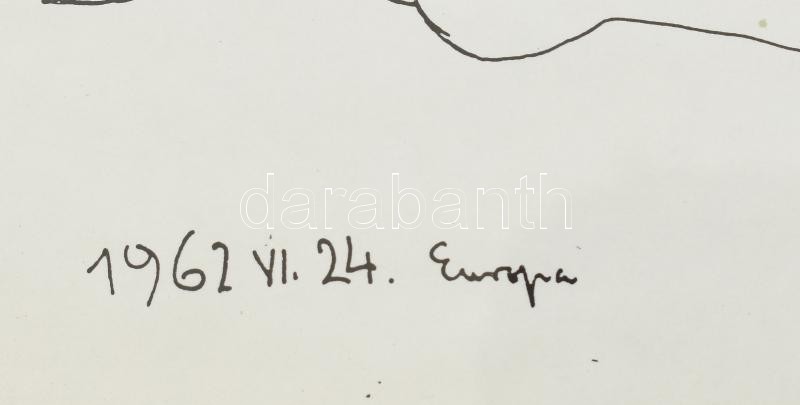 darabanth
1962 VI. 24. Europa